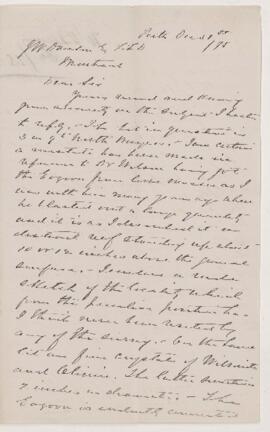 Perth Dec 1st /75
J W Dawson Esq LLD
Montreal
Dear Sir
Yours received and
from on the subject I hasten
to reply. - The Lot in question is
3 in 9th North Burgess. - I am certain
a mistake has been made in
reference to Dr Wilson having got
the Eozoon from there as I
was with him many years ago when
he blasted out a large quantity
and it is as I described it an
reef standing up about
10 or 12 inches above the general
surface. - I enclose a rude
sketch of the locality which
from the peculiar position has
I think never been visited by
any of the survey. - On the same
lot are fine crystals of Wilsonite
and . The latter sometimes
7 inches in diameter. - The
Eozoon is evidently connected